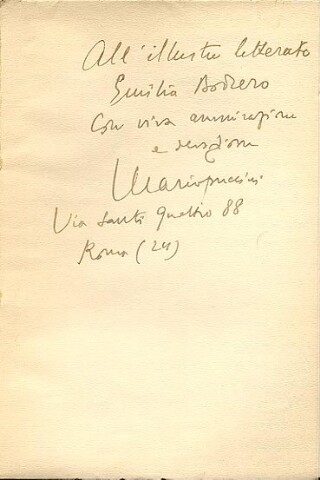 All'illustre letterato
Emilio Bodrero
con viva ammirazione
e devozione
Mario Puccini
Via Santi Quattro 88
Roma (24)